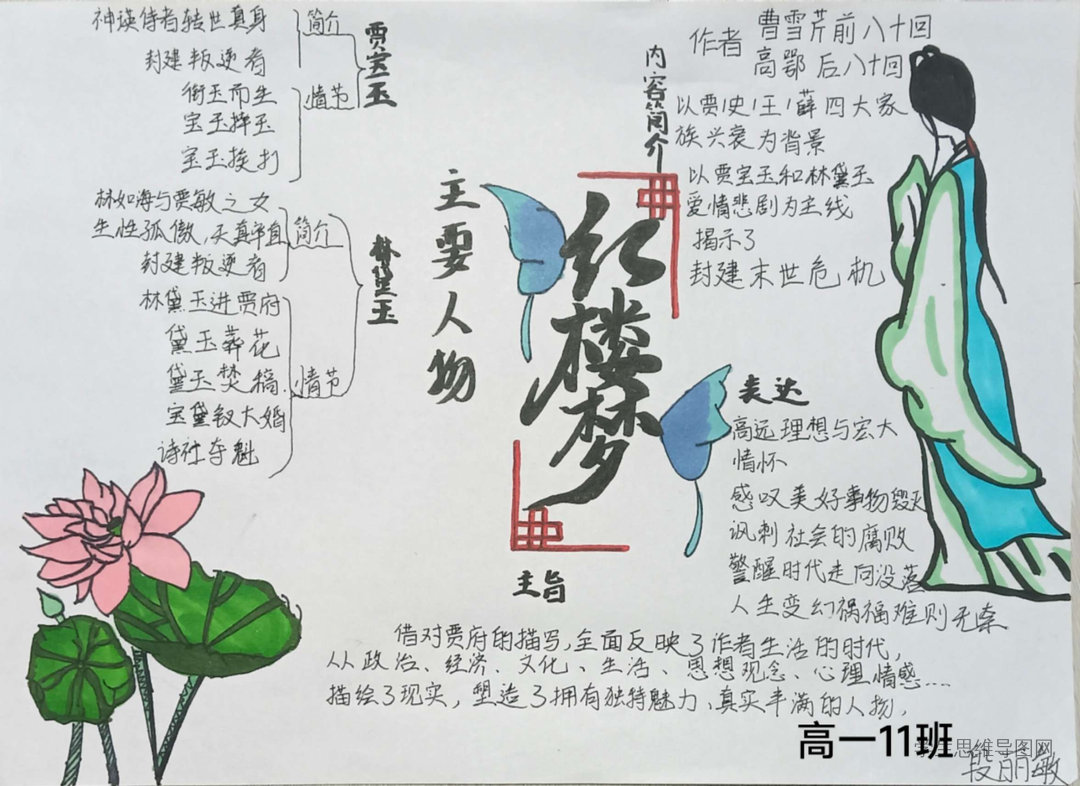 红楼梦
内容简介
作者 曹雪芹前八十回
高鄂 后八十回
以贾/史/王/薛四大家
族兴衰为背景
以贾宝玉和林黛玉
爱情悲剧为主线
揭示了
封建末世危机
主要人物
贾宝玉
简介
神瑛侍者转世真身
封建叛逆者
情节
衔玉而生
宝玉摔玉
宝玉挨打
林黛玉
简介
林如海与贾敏之女
生性孤傲,天真率直
封建叛逆者
情节
林黛玉进贾府
黛玉葬花
黛玉焚稿
宝黛钗大婚
诗社夺魁
表达
高远理想与宏大
情怀
感叹美好事物毁灭
讽刺社会的腐败
警醒时代走向没落
人生变幻祸福难则无奈
主旨
借对贾府的描写,全面反映了作者生活的时代,
从政治、经济、文化、生活、思想观念、心理情感....
描绘了现实,塑造了拥有独特魅力、真实丰满的人物.
高一11班
思维导图网
段丽敏